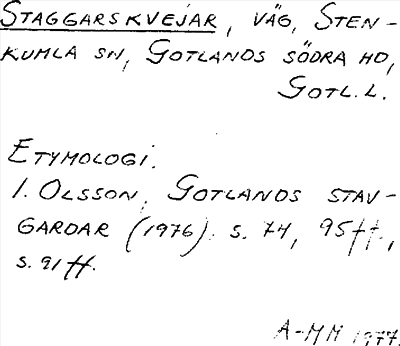 STAGGARSKVEJAR, VÄG, STEN-
KUMLA SN, GOTLANDS SÖDRA HD,
GOTL. L.
ETYMOLOGI.
I. OLSSON, GOTLANDS STAV-
GARDAR (1976). s. 74, 95ff.,
s. 91ff.
A-MM 1977.